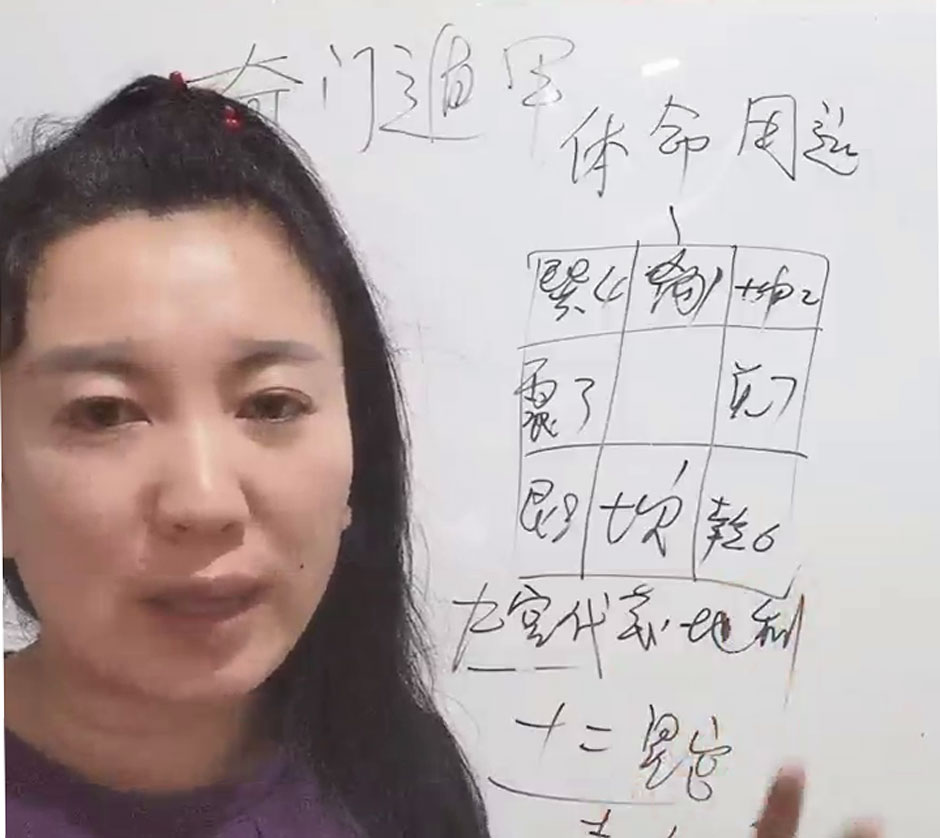 奇门遁甲
体命用运
巽4 离9 坤2
震3 兑7
艮8 坎1 乾6
九宫代表地利
十二